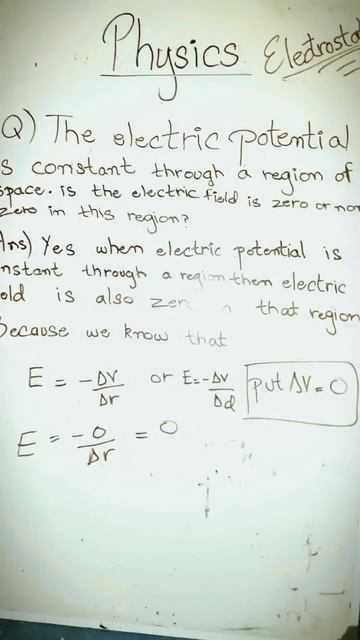 Physics Electrosta
Q) The electric potential
s constant through a region of
space. is the electric field is zero or non
zero in this region?
Ans) Yes when electric potential is
nstant through a region then electric
eld is also zer n that region
Because we know that
E = -ΔV/Δr or E=-ΔV/Δd put ΔV=0
E = -0/Δr = 0